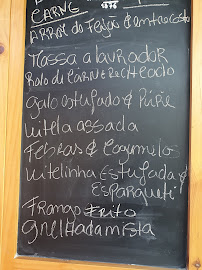 CARNE
ARROZ de Feijão & entrecosto
Massa a lavrador
Rolo de CARNE Recheado
Galo estufado & Púre
vitela assada
Febras & cogumelos
vitelinha Estufada &
ESPARQUETE
Frango Frito
Grelhada mista